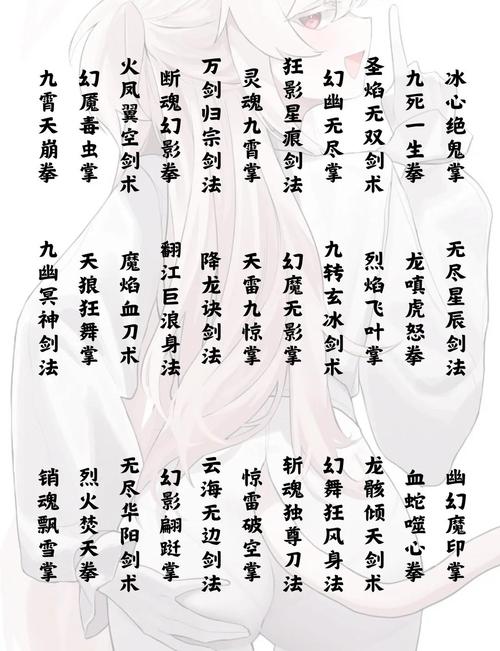 冰心绝鬼掌
九死一生拳
圣焰无双剑术
幻幽无尽掌
狂影星痕剑法
灵魂九霄掌
万剑归宗剑法
断魂幻影拳
火凤翼空剑术
幻魇毒虫掌
九霄天崩拳
无尽星辰剑法
龙嗔虎怒拳
烈焰飞叶掌
九转玄冰剑术
幻魔无影掌
天雷九惊掌
降龙诀剑法
翻江巨浪身法
魔焰血刀术
天狼狂舞掌
九幽冥神剑法
幽幻魔印掌
血蛇噬心拳
龙骸倾天剑术
幻舞狂风身法
斩魂独尊刀法
惊雷破空掌
云海无边剑法
幻影翩跹掌
无尽华阳剑术
烈火焚天拳
销魂飘雪掌